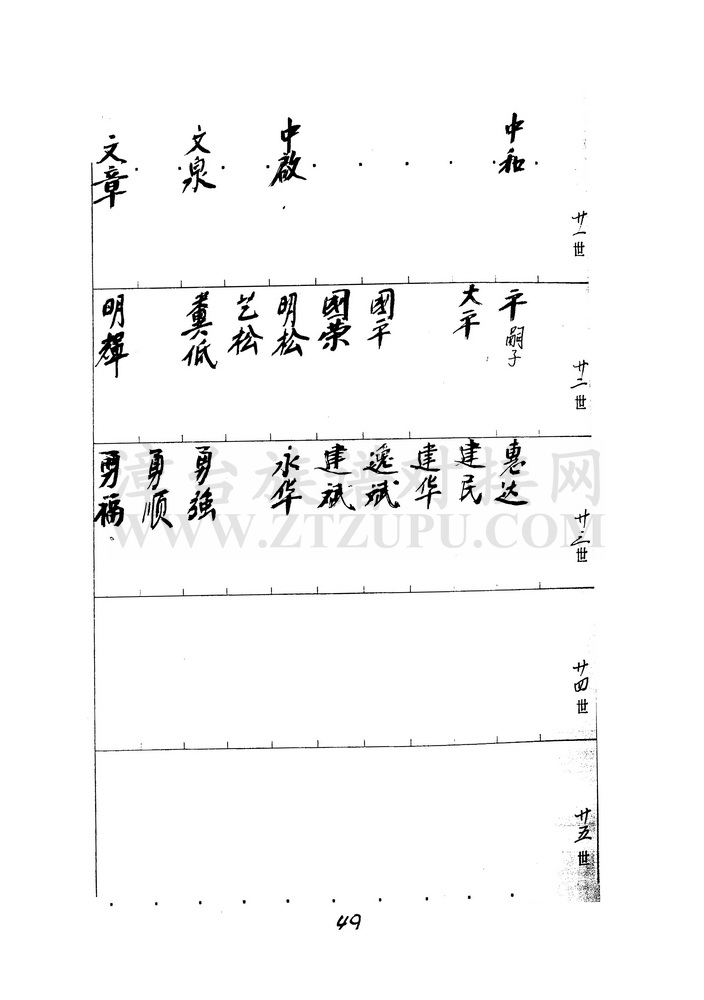 廿一世
中和
中啟
文泉
文章
廿二世
平 嗣子
大平
國平
國荣
明松
艺松
粪低
明輝
廿三世
惠达
建民
建华
逸斌
建斌
永华
勇強
勇順
勇福
廿四世
廿五世
49
漳台族譜对接网
WWW.ZTZUPU.COM